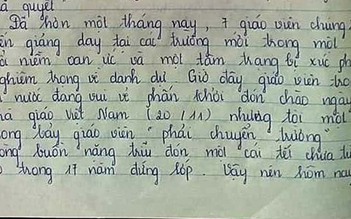 ả quyết
Đã hơn một tháng nay, 7 giáo viên chúng
ến giảng dạy tại các trường mới trong một
ỗi niềm oan ức và một tâm trạng bị xúc ph
nghiêm trọng về danh dự Giờ đây giáo viên tro
nước đang vui vẻ phấn khởi đón chào ngày
hà giáo Việt Nam (20/11) nhưng tôi một
ong bảy giáo viên "phải chuyển trường"
òng buồn nặng trĩu đón một cái tết chưa từ
ó trong 17 năm đứng lớp. Vậy nên hôm nay